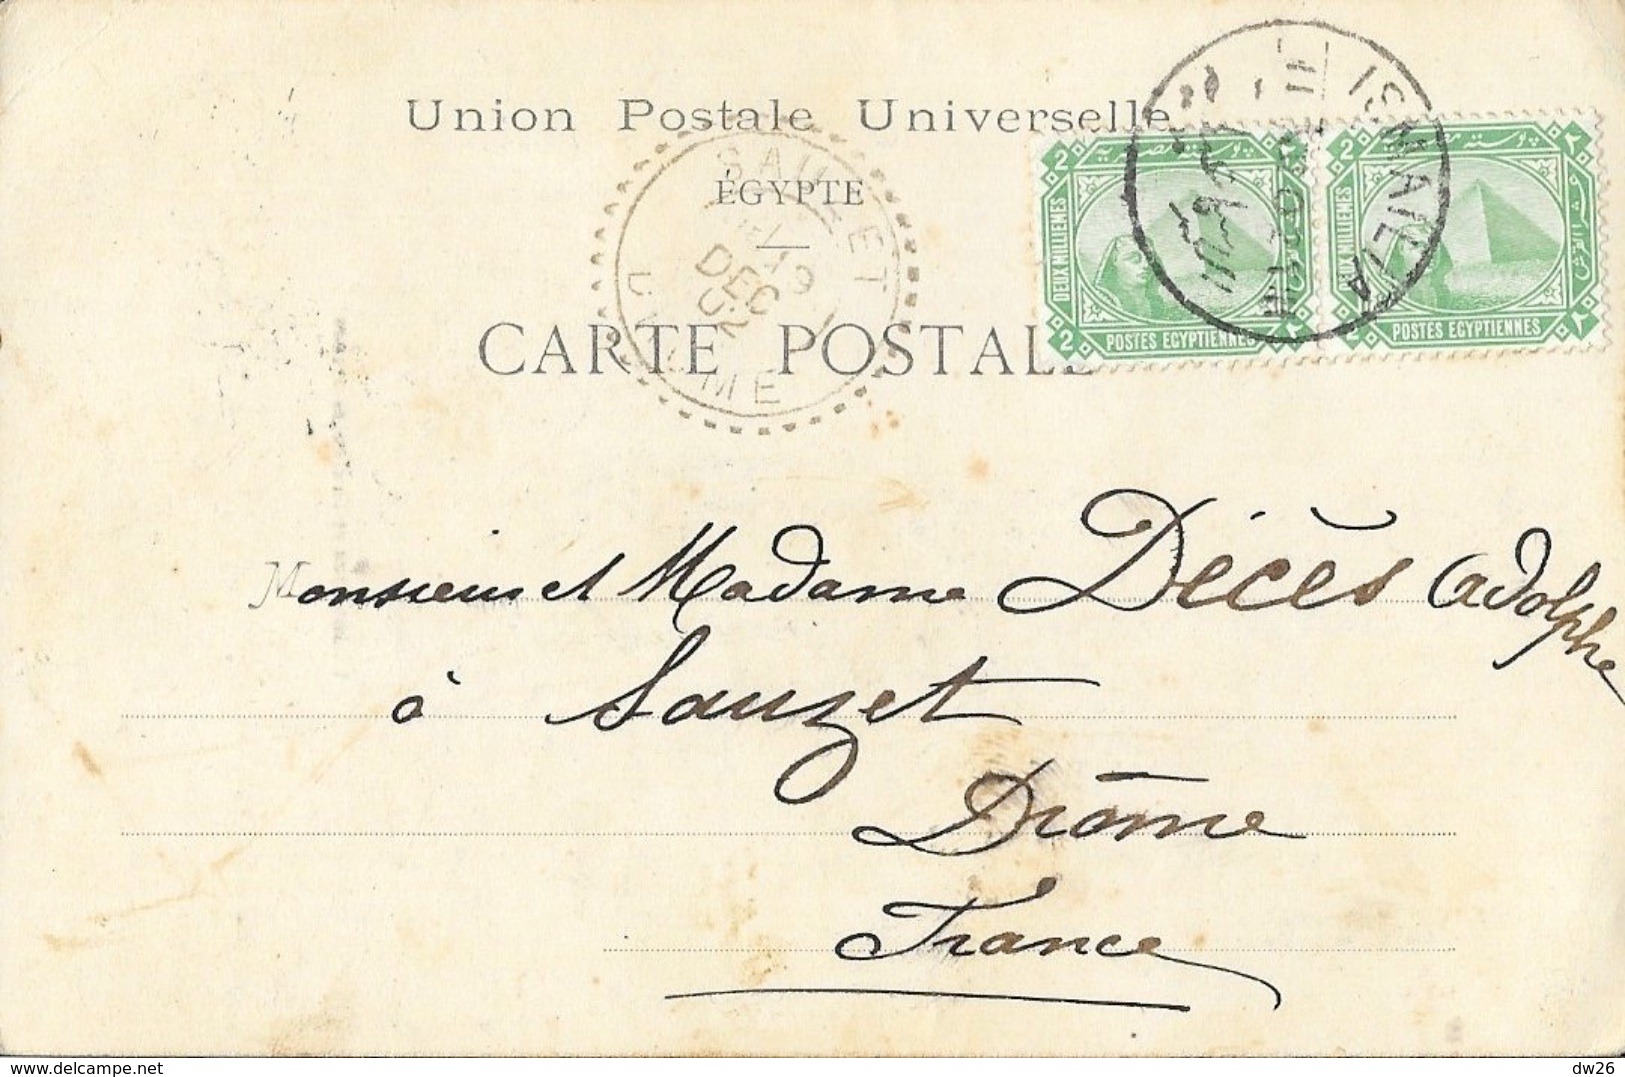 Union Postale Universelle
ÉGYPTE
CARTE POSTALE
SAUZET
19
DEC
02
DROME
ISMAILIA
بوسته مصرية
2
DEUX MILLIEMES
POSTES EGYPTIENNES
2
٢
2
DEUX MILLIEMES
POSTES EGYPTIENNES
2
٢
Monsieur et Madame Décès Adolphe
à Sauzet
Drôme
France
delcampe.net
dw26